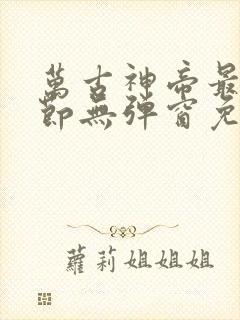 萬古神帝最
節無彈窗免
蘿莉姐姐姐